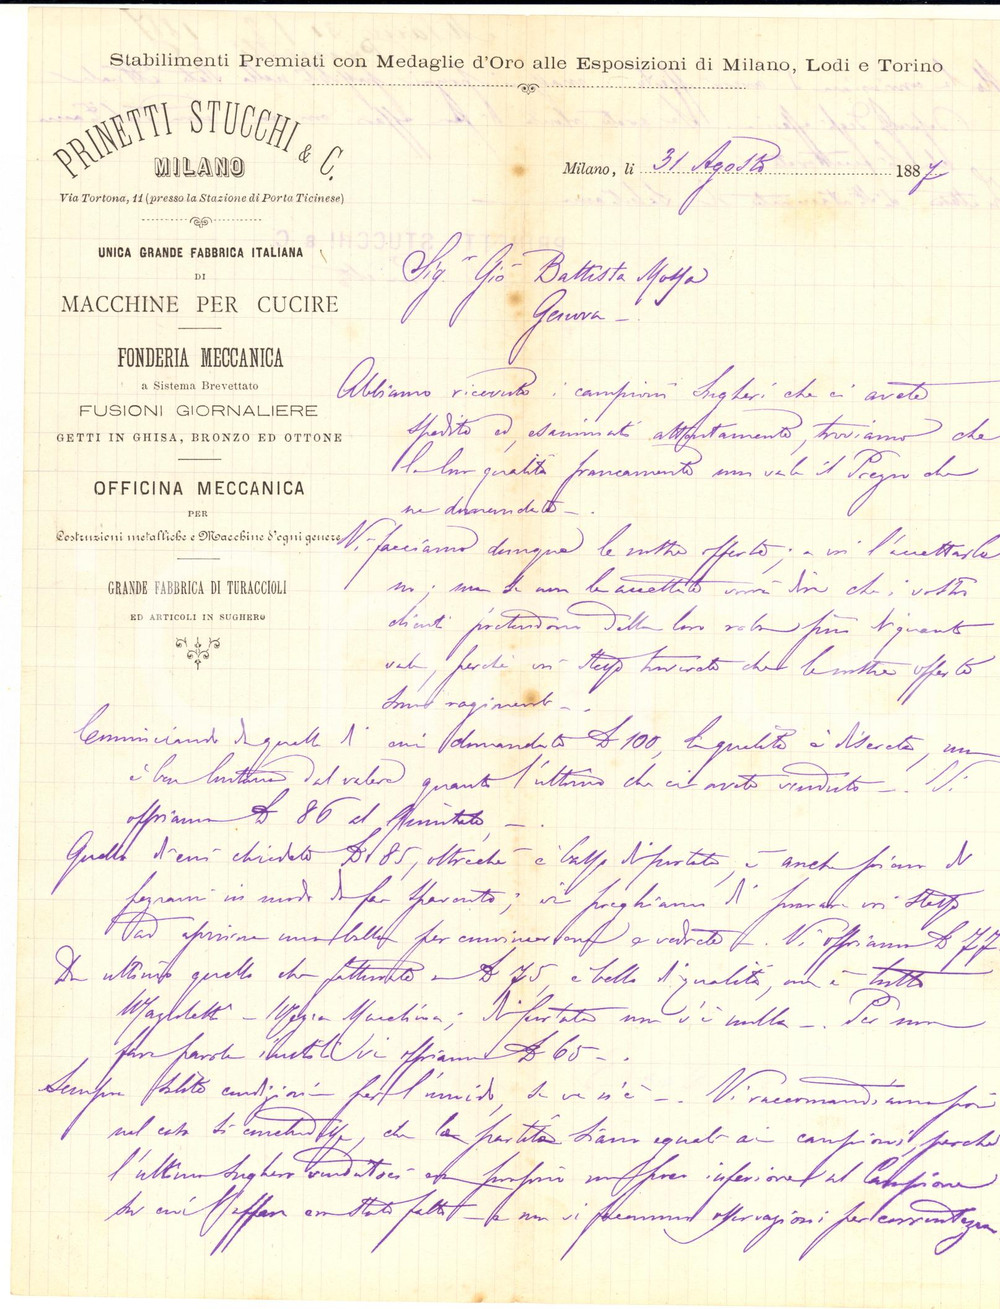 Stabilimenti Premiati con Medaglie d'Oro alle Esposizioni di Milano, Lodi e Torino
PRINETTI STUCCHI & C.
MILANO
Via Tortona, 11 (presso la Stazione di Porta Ticinese)
UNICA GRANDE FABBRICA ITALIANA
DI
MACCHINE PER CUCIRE
FONDERIA MECCANICA
a Sistema Brevettato
FUSIONI GIORNALIERE
GETTI IN GHISA, BRONZO ED OTTONE
OFFICINA MECCANICA
PER
Costruzioni metalliche e Macchine d'ogni genere
GRANDE FABBRICA DI TURACCIOLI
ED ARTICOLI IN SUGHERO
Milano, li 31 Agosto 1887
Sig. Gio Battista
Genova
Abbiamo ricevuto i campioni Sugheri che ci avete
spedito ed, esaminati attentamente, troviamo che
la loro qualità francamente non vale il Prezzo che
ne domandate.
Vi facciamo dunque le nostre offerte; a voi l'accettarle
no; ma se non le accettate vorrà dire che i vostri
clienti pretendono della loro roba più di quanto
vale, perchè voi stesso troverete che le nostre offerte
sono
Cominciando da quella di cui domandate £ 100, la qualità è discreta, ma
è ben lontana dal valere quanto l'ultimo che ci avete venduto. Vi
offriamo £ 86 al Quintale.
Quello di cui chiedete £ 85, oltrechè è basso di portata, è anche pieno di
in modo da far spavento; vi preghiamo di provare voi stesso
ad aprirne una balla per convincervene e vedrete. Vi offriamo £ 77
Da ultimo quello che fatturate a £ 75, è bello di qualità, ma è tutto
Mezza Macchina; di portata non v'è nulla. Per non
fare parole inutili vi offriamo £ 65.
Sempre solite condizioni per l'umido, se ve n'è. Vi raccomandiamo poi
nel caso si concludesse, che la partita siano eguali ai campioni, perchè
l'ultimo sughero vendutoci era proprio un poco inferiore al Campione
su cui l'affare era stato fatto e non vi facemmo osservazioni per correntezza